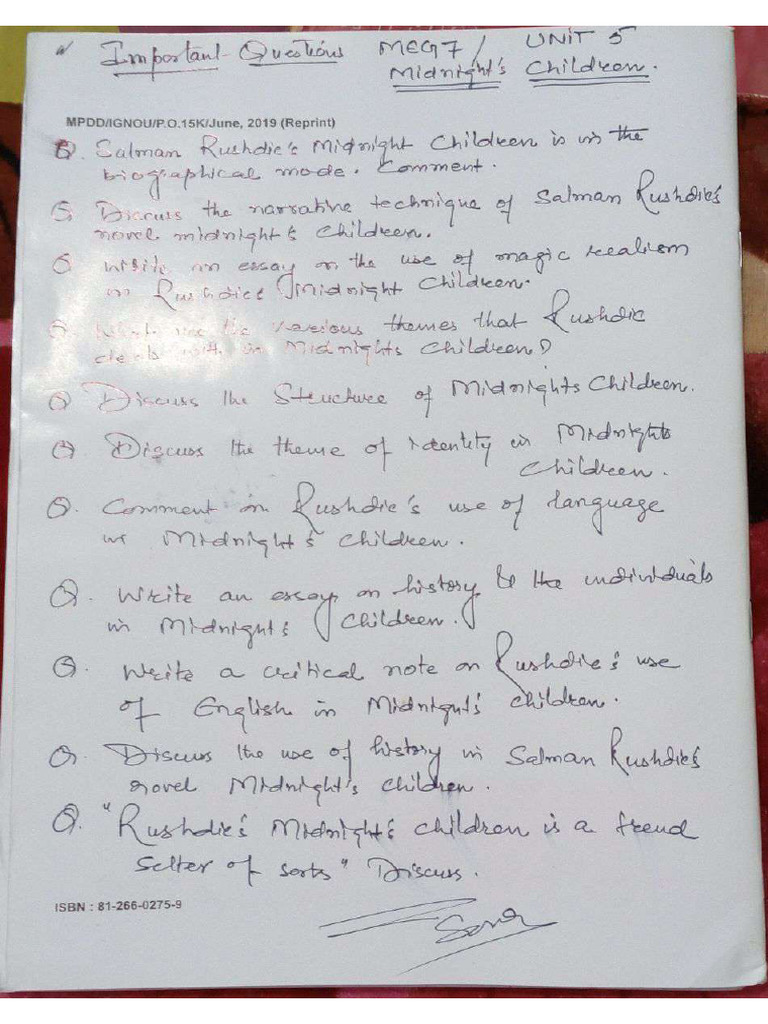 Important Questions MEG7/ UNIT 5
Midnight's Children.
MPDD/IGNOU/P.O.15K/June, 2019 (Reprint)
Q. Salman Rushdie's Midnight Children is in the
biographical mode. Comment.
Q. Discuss the narrative technique of Salman Rushdie's
novel midnight's Children.
Q Write an essay on the use of magic realism
in Rushdies Midnight Children.
Q. What are the various themes that Rushdie
deals with in Midnights Children?
Q Discuss the Structure of Midnights Children.
Q Discuss the theme of identity in Midnights
Children.
Q. Comment on Rushdie's use of language
in Midnight's Children.
Q. Write an essay on history & the individuals
in Midnight's Children.
Q. Write a critical note on Rushdie's use
of English in Midnight's Children.
Q. Discuss the use of history in Salman Rushdie's
novel Midnight's Children.
Q. "Rushdie's Midnight's Children is a trend
setter of sorts" Discuss.
ISBN : 81-266-0275-9